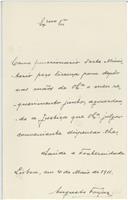 Exmo Sr.
Como funccionario d'este Minis-
terio peço licença para depôr
nas mãos de V. Exa o meu re-
querimento junto, aguardan-
do a justiça que V. Exa julgar
conveniente dispensar-lhe.
Saude e Fraternidade
Lisboa, em 4 de Maio de 1911.
Augusto